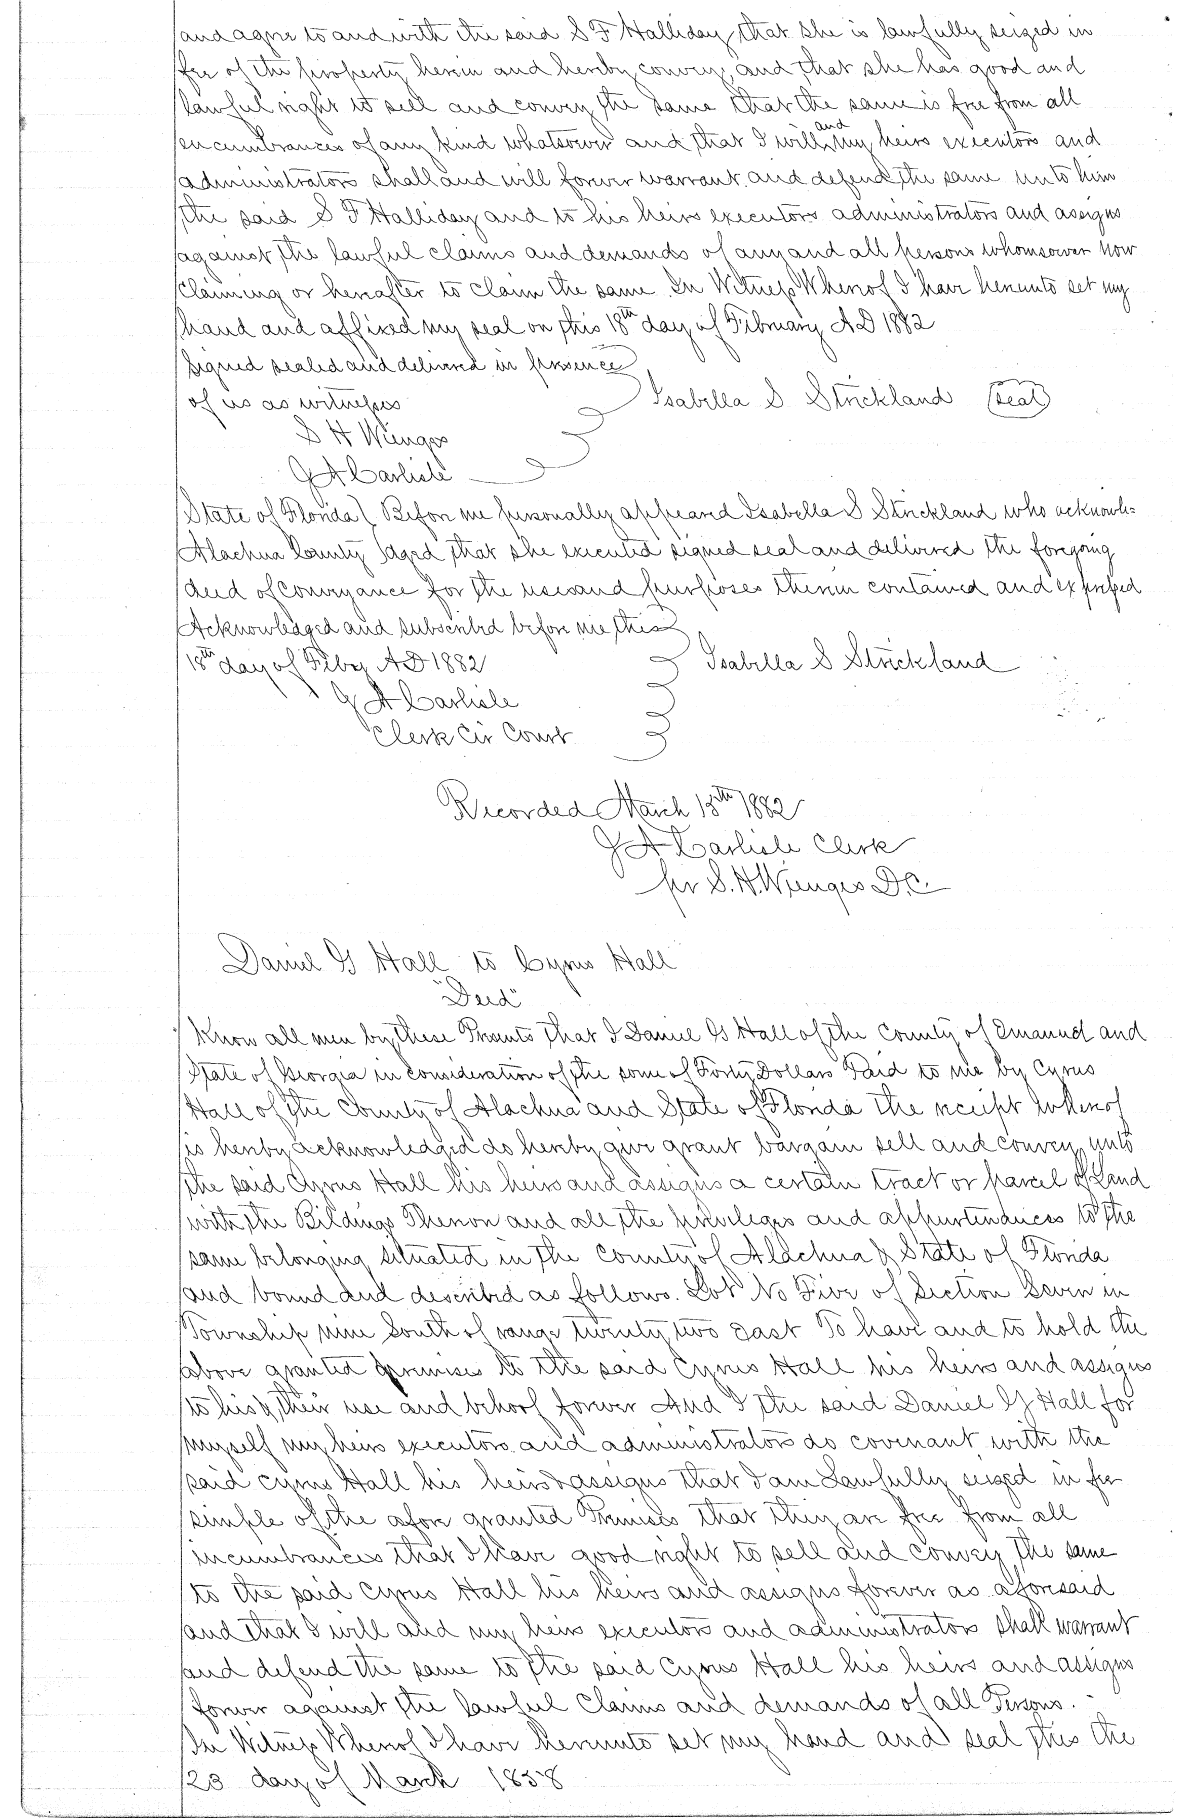 and agree to and with the said S F Halliday that she is lawfully seized in
fee of the property herein and hereby convey, and that she has good and
lawful right to sell and convey the same that the same is free from all
encumbrances of any kind whatsoever and that I will and my heirs executors and
administrators shall and will forever warrant and defend the same unto him
the said S F Halliday and to his heirs executors administrators and assigns
against the lawful claims and demands of any and all persons whomsoever now
claiming or hereafter to claim the same In Witness Whereof I have hereunto set my
hand and affixed my seal on this 18th day of February A D 1882
Signed sealed and delivered in presence
of us as witnesses
Isabella S Strickland (seal)
S H Wienges
J A Carlisle
State of Florida } Before me personally appeared Isabella S Strickland who acknowle=
Alachua County } dged that she executed signed seal and delivered the foregoing
deed of conveyance for the uses and purposes therein contained and expressed
Acknowledged and subscribed before me this
18th day of Feby A D 1882
Isabella S Strickland
J A Carlisle
Clerk Cir Court
Recorded March 13th 1882
J A Carlisle Clerk
per S. H. Wienges D.C.
Daniel G Hall to Cyrus Hall
"Deed"
Know all men by these Presents that I Daniel G Hall of the County of Emanuel and
State of Georgia in consideration of the some of Forty Dollars Paid to me by Cyrus
Hall of the County of Alachua and State of Florida the receipt whereof
is hereby acknowledged do hereby give grant bargain sell and convey unto
the said Cyrus Hall his heirs and assigns a certain tract or parcel of Land
with the Bildings Thereon and all the privileges and appurtenances to the
same belonging situated in the County of Alachua & State of Florida
and bound and described as follows. Lot No Five of Section Seven in
Township nine South of range twenty two East To have and to hold the
above granted premises to the said Cyrus Hall his heirs and assigns
to his & their use and behoof forever And I the said Daniel G Hall for
myself my heirs executors and administrators do covenant with the
said Cyrus Hall his heirs & assigns that I am Lawfully seized in fee
simple of the afore granted Premises that they are free from all
incumbrances that I have good right to sell and convey the same
to the said Cyrus Hall his heirs and assigns forever as aforesaid
and that I will and my heirs executors and administrators shall warrant
and defend the same to the said Cyrus Hall his heirs and assigns
forever against the lawful Claims and demands of all Persons.
In Witness Whereof I have hereunto set my hand and seal this the
23 day of March 1858